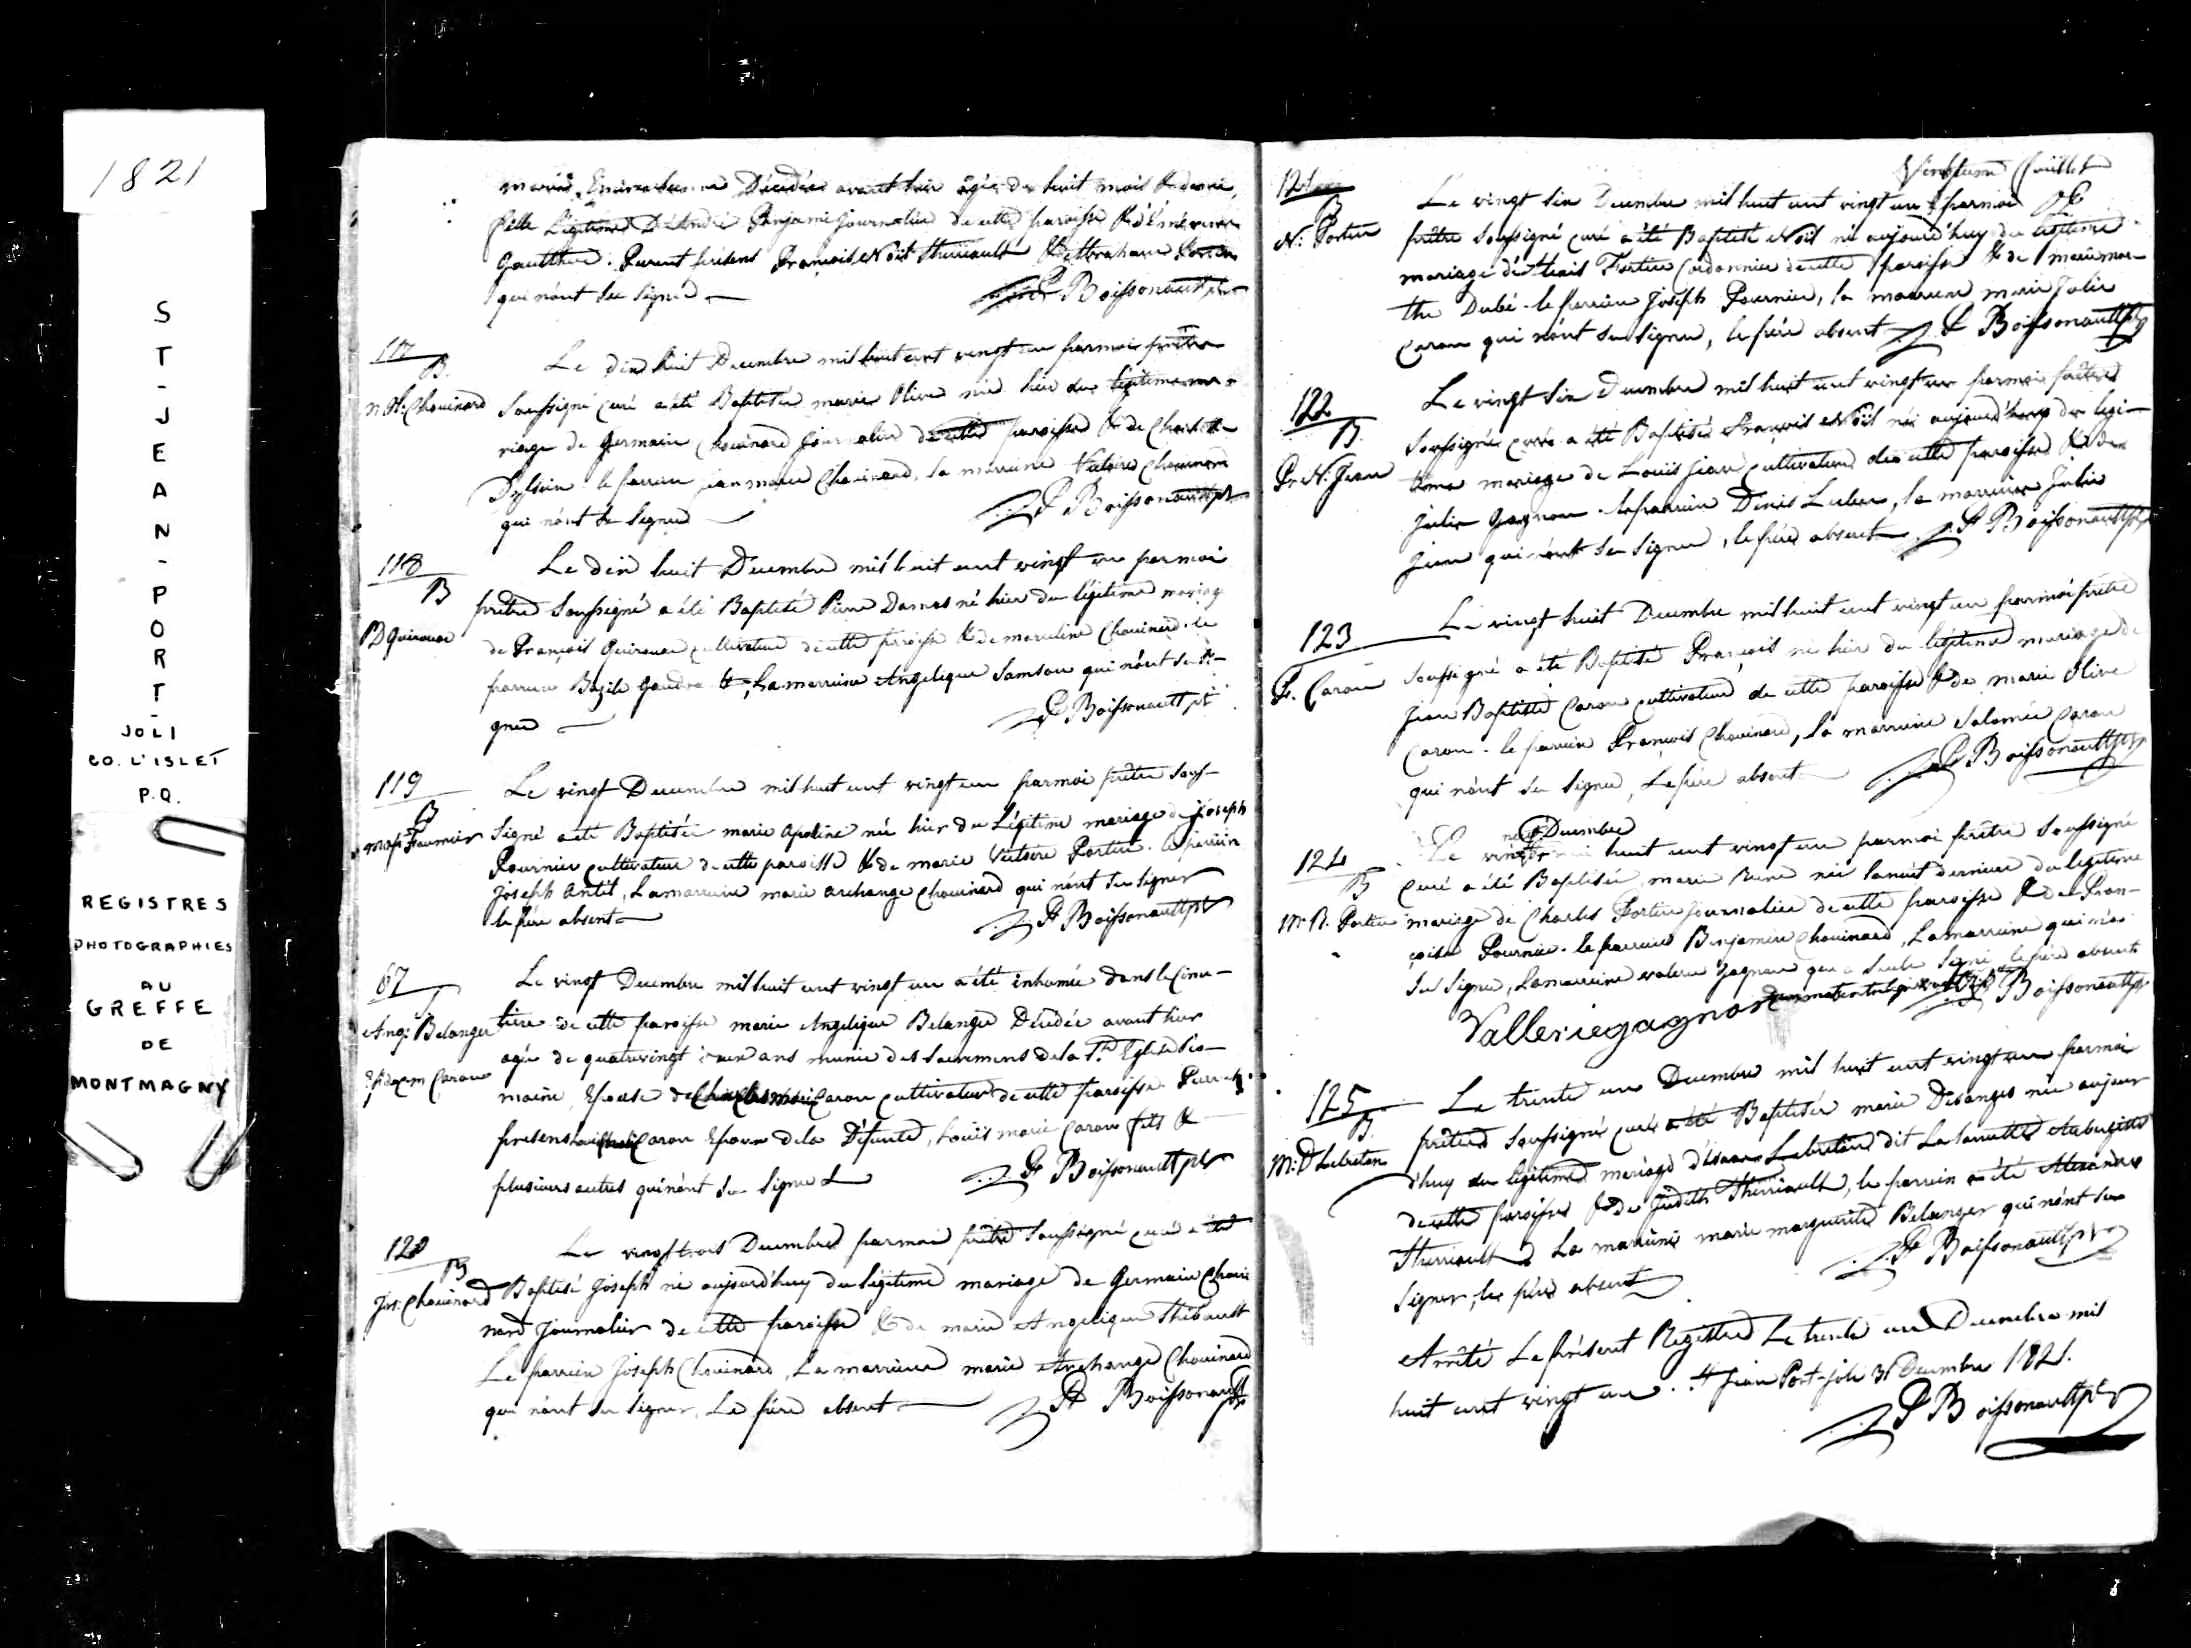 1821
ST-JEAN-PORT-
JOLI
CO. L'ISLET
P.Q.
REGISTRES
PHOTOGRAPHIES
AU
GREFFE
DE
MONTMAGNY
marie Décédée avant hier agée de huit mois & demie,
fille Légitime D'André journalier de cette paroisse &
Gautthier. Furent présens François Noël Thériault & Abraham
qui n'ont su signer Fr Boissonnault ptre
117
B.
Chouinard
Le dix huit Decembre mil huit cent vingt un par moi prêtre
soussigné curé a été Baptisée marie Olive née hier du légitime ma-
riage de Germain Chouinard journalier de cette paroisse & de Charlotte
le parrain jean marie Chouinard, la marraine Victoire Chouinard
qui n'ont su signer Fr Boissonnault ptre
118
B
PD Guirouac
Le dix huit Decembre mil huit cent vingt un par moi
prêtre soussigné a été Baptisé Pierre Damas né hier du légitime mariag
de François Guirouac cultivateur de cette paroisse & de marceline Chouinard. le
parrain Bazile Gaudre , La marraine Angelique Samson qui n'ont su si-
gner Fr Boissonault pt
119
B
M. ap. Fournier
Le vingt Decembre mil huit cent vingt un par moi prêtre sous-
signé a été Baptisée marie apoline née hier du Légitime mariage de joseph
Fournier cultivateur de cette paroisse & de marie Victoire Fortin. le parrain
Joseph Antil, La marraine marie archange Chouinard qui n'ont su signer
le père absent Fr Boissonault ptr
67
S
Ang: Belanger
Caron
Le vingt Decembre mil huit cent vingt un a été inhumée dans le Cime-
tiere de cette paroisse marie Angelique Belanger Décédée avant hier
agée de quatre vingt ans munie des Sacremens de la Ste Eglise Ro-
maine, Epouse de Caron cultivateur de cette paroisse. Furent
presens Caron Epoux de la Défunte, Louis marie Caron fils &
plusieurs autres qui n'ont su signer Fr Boissonault ptr
120
B
Jos: Chouinard
Le vingt trois Decembre par moi prêtre soussigné curé a été
Baptisé Joseph né aujourd'huy du légitime mariage de Germain Choui
nard Journalier de cette paroisse & de marie Angelique Thibault
Le parrain Joseph Chouinard, La marraine marie Archange Chouinard
qui n'ont su signer, Le père absent Fr Boissonault ptr
Vingtieme feuillet
121
B
N: Fortin
Le vingt six Decembre mil huit cent vingt un par moi
prêtre soussigné curé a été Baptisé Noël né aujourd'huy du légitime
mariage de Fortin Cordonnier de cette paroisse & de
Dubé. le parrain Joseph Fournier, la marraine marie Julie
Caron qui n'ont su signer, le père absent Fr Boissonnault ptr
122
B.
Fr. N. Jean
Le vingt six Decembre mil huit cent vingt un par moi prêtre
soussigné curé a été Baptisé François Noël né aujourd'huy du legi-
time mariage de Louis Jean cultivateur de cette paroisse & de
Julie Gagnon. le parrain Denis , la marraine Julie
Jean qui n'ont su signer, le père absent. Fr Boissonault ptr
123
F. Caron
Le vingt huit Decembre mil huit cent vingt un par moi prêtre
soussigné a été Baptisé François né hier du légitime mariage de
Jean Baptiste Caron cultivateur de cette paroisse & de marie Olive
Caron. le parrain François Chouinard, la marraine Salomée Caron
qui n'ont su signer, Le père absent Fr Boissonault ptr
124
B
M: R. Fortin
neuf Decembre
Le vingt huit cent vingt un par moi prêtre soussigné
curé a été Baptisée marie née la nuit derniere du legitime
mariage de Charles Fortin journalier de cette paroisse & de Fran-
çoise Fournier. le parrain Benjamin Chouinard, La marraine qui n'a
su signer, La marraine valerie Gagnon qui a seule signé le père absent
Fr Boissonault ptr
Vallerie gagnon
125
B.
M: D Lebreton
Le trente un Decembre mil huit cent vingt un par moi
prêtre soussigné curé a été Baptisée marie Desanges née aujour
d'huy du légitime mariage d'Isaac Lebreton dit Lalancette Aubergiste
de cette paroisse & de Judith Therriault, le parrain a été Alexandre
Therriault La marraine marie marguerite Belanger qui n'ont su
signer, le père absent Fr Boissonault ptr
Arrêté Le présent Registre Le trente un Decembre mil
huit cent vingt un. St Jean Port-joli 31 Decembre 1821.
Fr Boissonault ptr